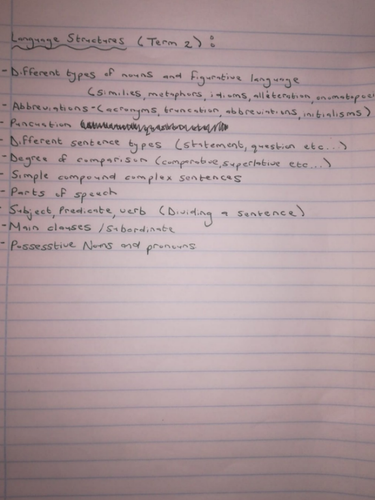 Language Structures (Term 2) :
- Different types of nouns and figurative language
(similies, metaphors, idioms, alliteration, onomatopoei
- Abbreviations - (acronyms, truncation, abbreviations, initialisms)
- Puncuation
- Different sentence types (statement, question etc...)
- Degree of comparison (comparative, superlative etc...)
- Simple compound complex sentences
- Parts of speech
- Subject, Predicate, verb (Dividing a sentence)
- Main clauses / Subordinate
- Possesstive Nouns and pronouns